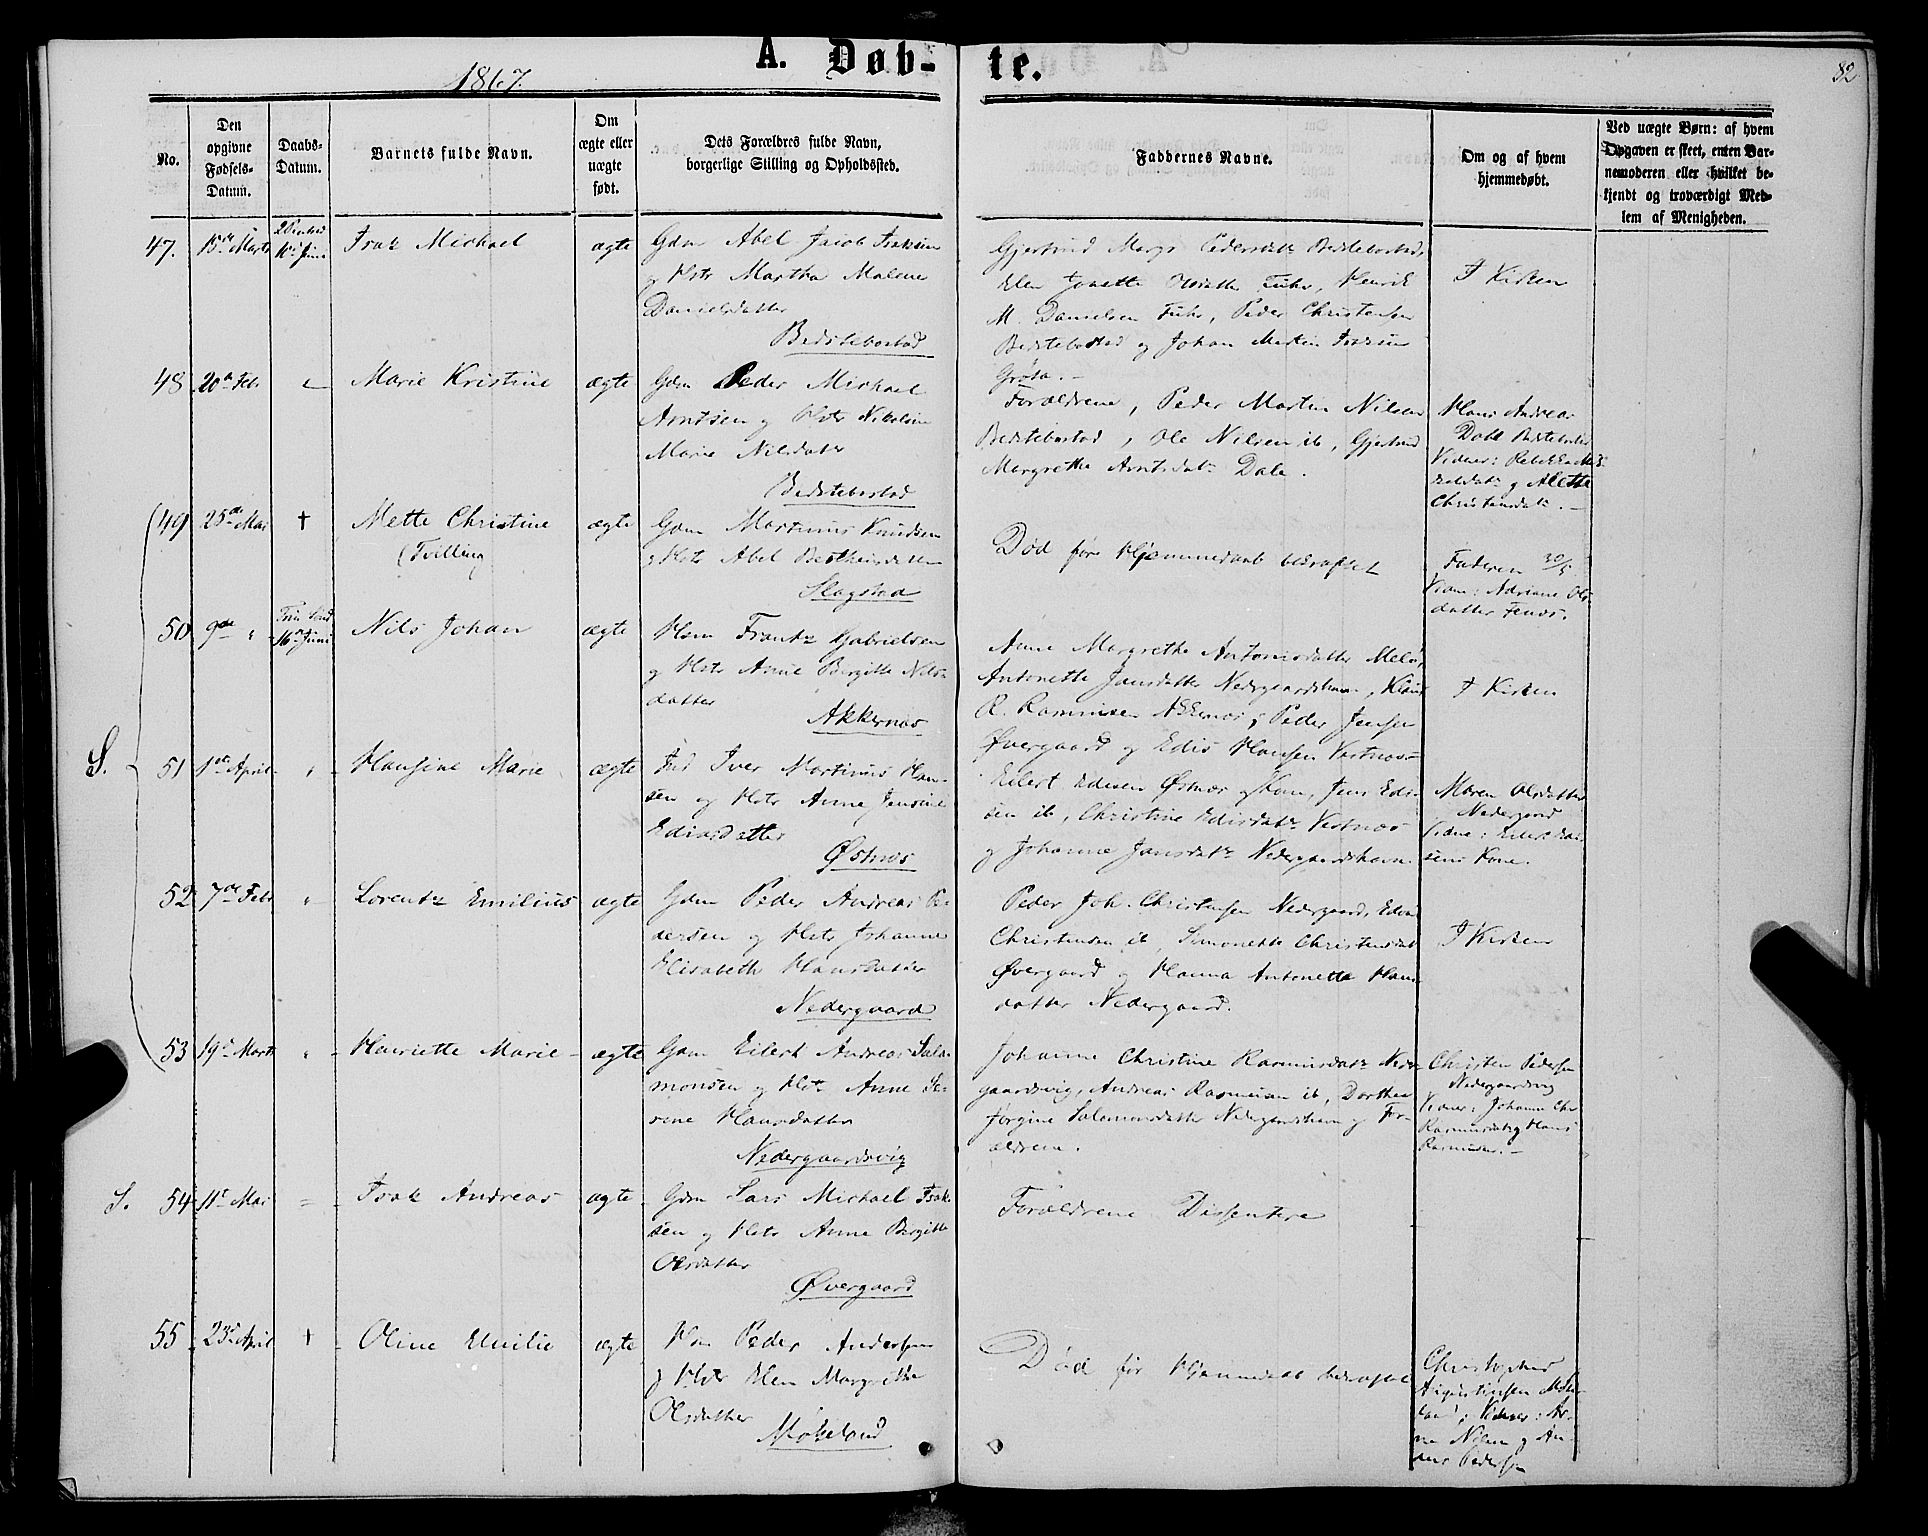 A. Døb-
te.
1867.
82
No.
Den opgivne Fødsels-Datum.
Daabs-Datum.
Barnets fulde Navn.
Om ægte eller uægte født.
Dets Forældres fulde Navn, borgerlige Stilling og Opholdssted.
Faddernes Navne.
Om og af hvem hjemmedøbt.
Ved uægte Børn: af hvem
Opgaven er skeet, enten Bar-
nemoderen eller hvilket be-
kjendt og troværdigt Med-
lem af Menigheden.
47. 15de Marts 10de Juni Isak Michael ægte
Gdm Abel Jacob Isaksen
og Hstr Martha Malene
Danielsdatter
Bedstebostad
Gjertrud Margr Pedersdatr Bedstebostad,
Elen Jonette Olsdatter Fuhr, Henrik
M. Danielsen Fuhr, Peder Christensen
Bedstebostad og Johan Martin Isaksen
Grøsa.-
I Kirken
48 20de Febr Marie Kristine ægte
Gdm Peder Michael
Arntsen og Hstr Nikoline
Marie Nilsdatr
Bedstebostad
Forældrene, Peder Martin Nilsen
Bedstebostad, Ole Nilsen ib, Gjertrud
Margrethe Arntsdatr Dale.
Hans Andreas
Dahl Bedstebostad
Vidner: Rebekka
og Alette
Christensdatr.-
49 25de Mai † Mette Christine ægte
(Tvilling
Gdm Martinus Knudsen
og Hstr Abel
Slagstad
Død før Hjemmedaab bedræftet
Faderen 30/5
Adriane Ols-
datter Fenes.
50 9de " 16de Juni Nils Johan ægte
Hsm Frantz Gabrielsen
og Hstr Anne Birgitte Nils-
datter
Akkernæs
Anne Margrethe Antonisdatter Melø,
Antonette Jansdatter Nedergaardshavn,
R. Rasmussen Akkernæs, Peder Jensen
Øvergaard og Edis Hansen Vestnæs
I Kirken
S.
51 1de April " Hansine Marie ægte
Ind Iver Martinus Han-
sen og Hstr Anne Jensine
Edisdatter
Østnæs
Eilert Edisen Østnæs og Kone, Jens Edi-
sen ib, Christine Edisdatr Vestnæs
og Johanne Jansdatr Nedergaardshavn.
Maren Olsdatter
Nedergaard
Vidne: Eilert Edi-
sens Kone.
52 7de Febr " Lorentz Emilius ægte
Gdm Peder Andreas Pe-
dersen og Hstr Johanne
Elisabeth Hansdatter
Nedergaard
Peder Joh. Christensen Nedergaard,
Christensen ib, Simonette Christensdatr
Øvergaard og Hanna Antonette Hans-
datter Nedergaard.
I Kirken
53 19de Marts " Henriette Marie ægte
Gdm Eilert Andreas Salo-
monsen og Hstr Anne Se-
rine Hansdatter
Nedergaardsvig
Johanne Christine Rasmusdatr Neder-
gaardsvig, Andreas Rasmussen ib, Dorthea
Jørgine Salomonsdatter Nedergaardshavn og For-
ældrene.
Christen Pedersen
Nedergaardsvig
Vidner: Johanne Chr
Rasmusdatr og Hans
Rasmussen.-
S. 54 11te Mai = Isak Andreas ægte
Gdm Lars Michael Isak-
sen og Hstr Anne Birgitte
Olsdatter
Øvergaard
Forældrene Dissentere
55 23de April † Oline Emilie ægte
Hsm Peder Andersen
og Hstr Elen Margrethe
Olsdatter
Møkeland
Død før Hjemmedaab bedræftet
Christopher
Augustinsen Møke-
land, Vidner: Ar-
ne Nilsen og An-
ders Pedersen